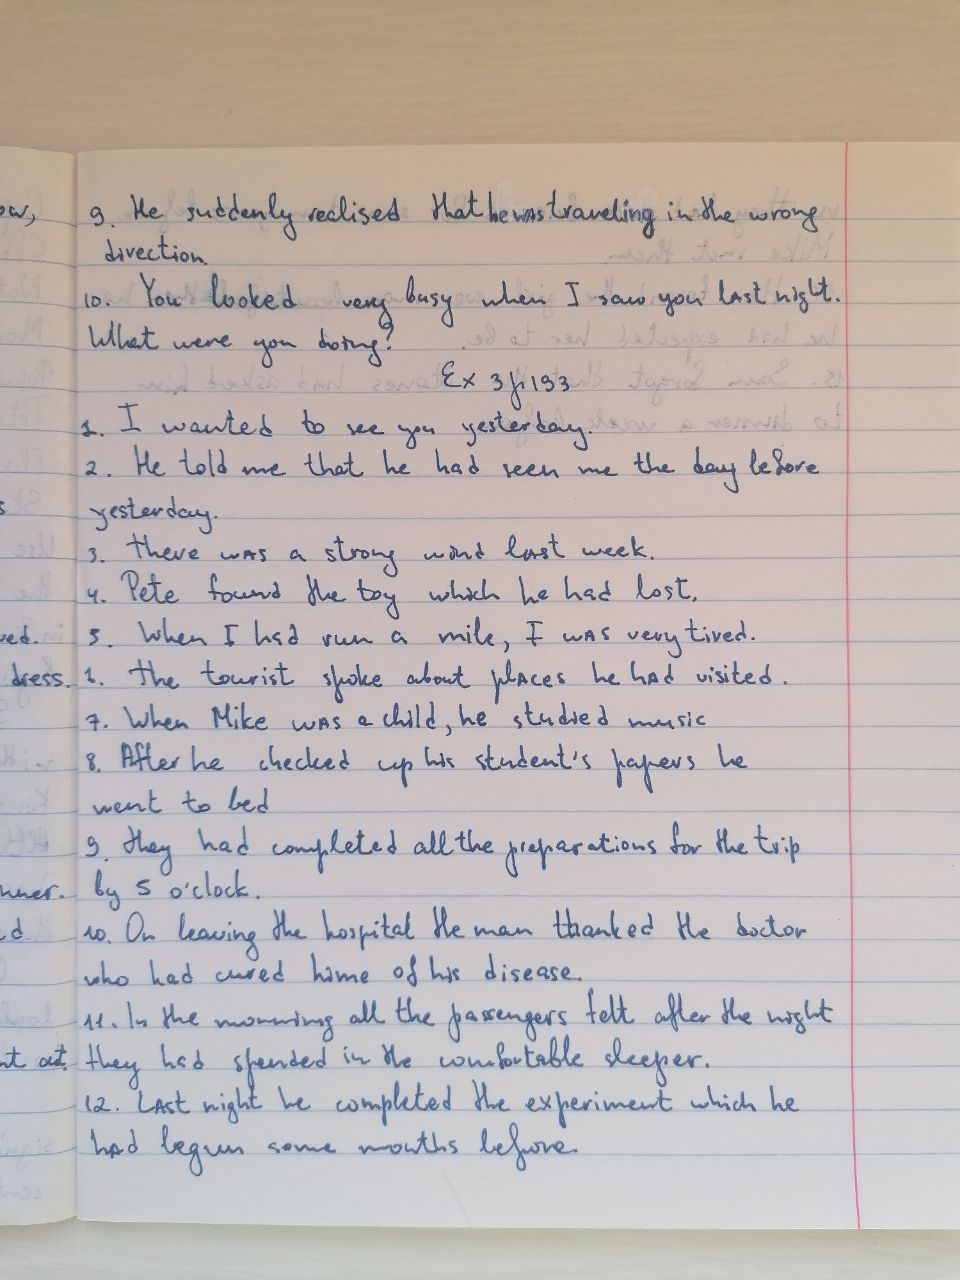 9. He suddenly realised that he was traveling in the wrong
direction.
10. You looked very busy when I saw you last night.
What were you doing?
Ex 3 p 193
1. I wanted to see you yesterday.
2. He told me that he had seen me the day before
yesterday.
3. there was a strong wind last week.
4. Pete found the toy which he had lost.
5. When I had run a mile, I was very tired.
1. the tourist spoke about places he had visited.
7. When Mike was a child, he studied music
8. After he checked up his student's papers he
went to bed
9. they had completed all the preparations for the trip
by 5 o'clock.
10. On leaving the hospital the man thanked the doctor
who had cured hime of his disease.
11. In the mornning all the passengers felt after the night
they had spended in the comfortable sleeper.
12. Last night he completed the experiment which he
had begun some months before.
dress.